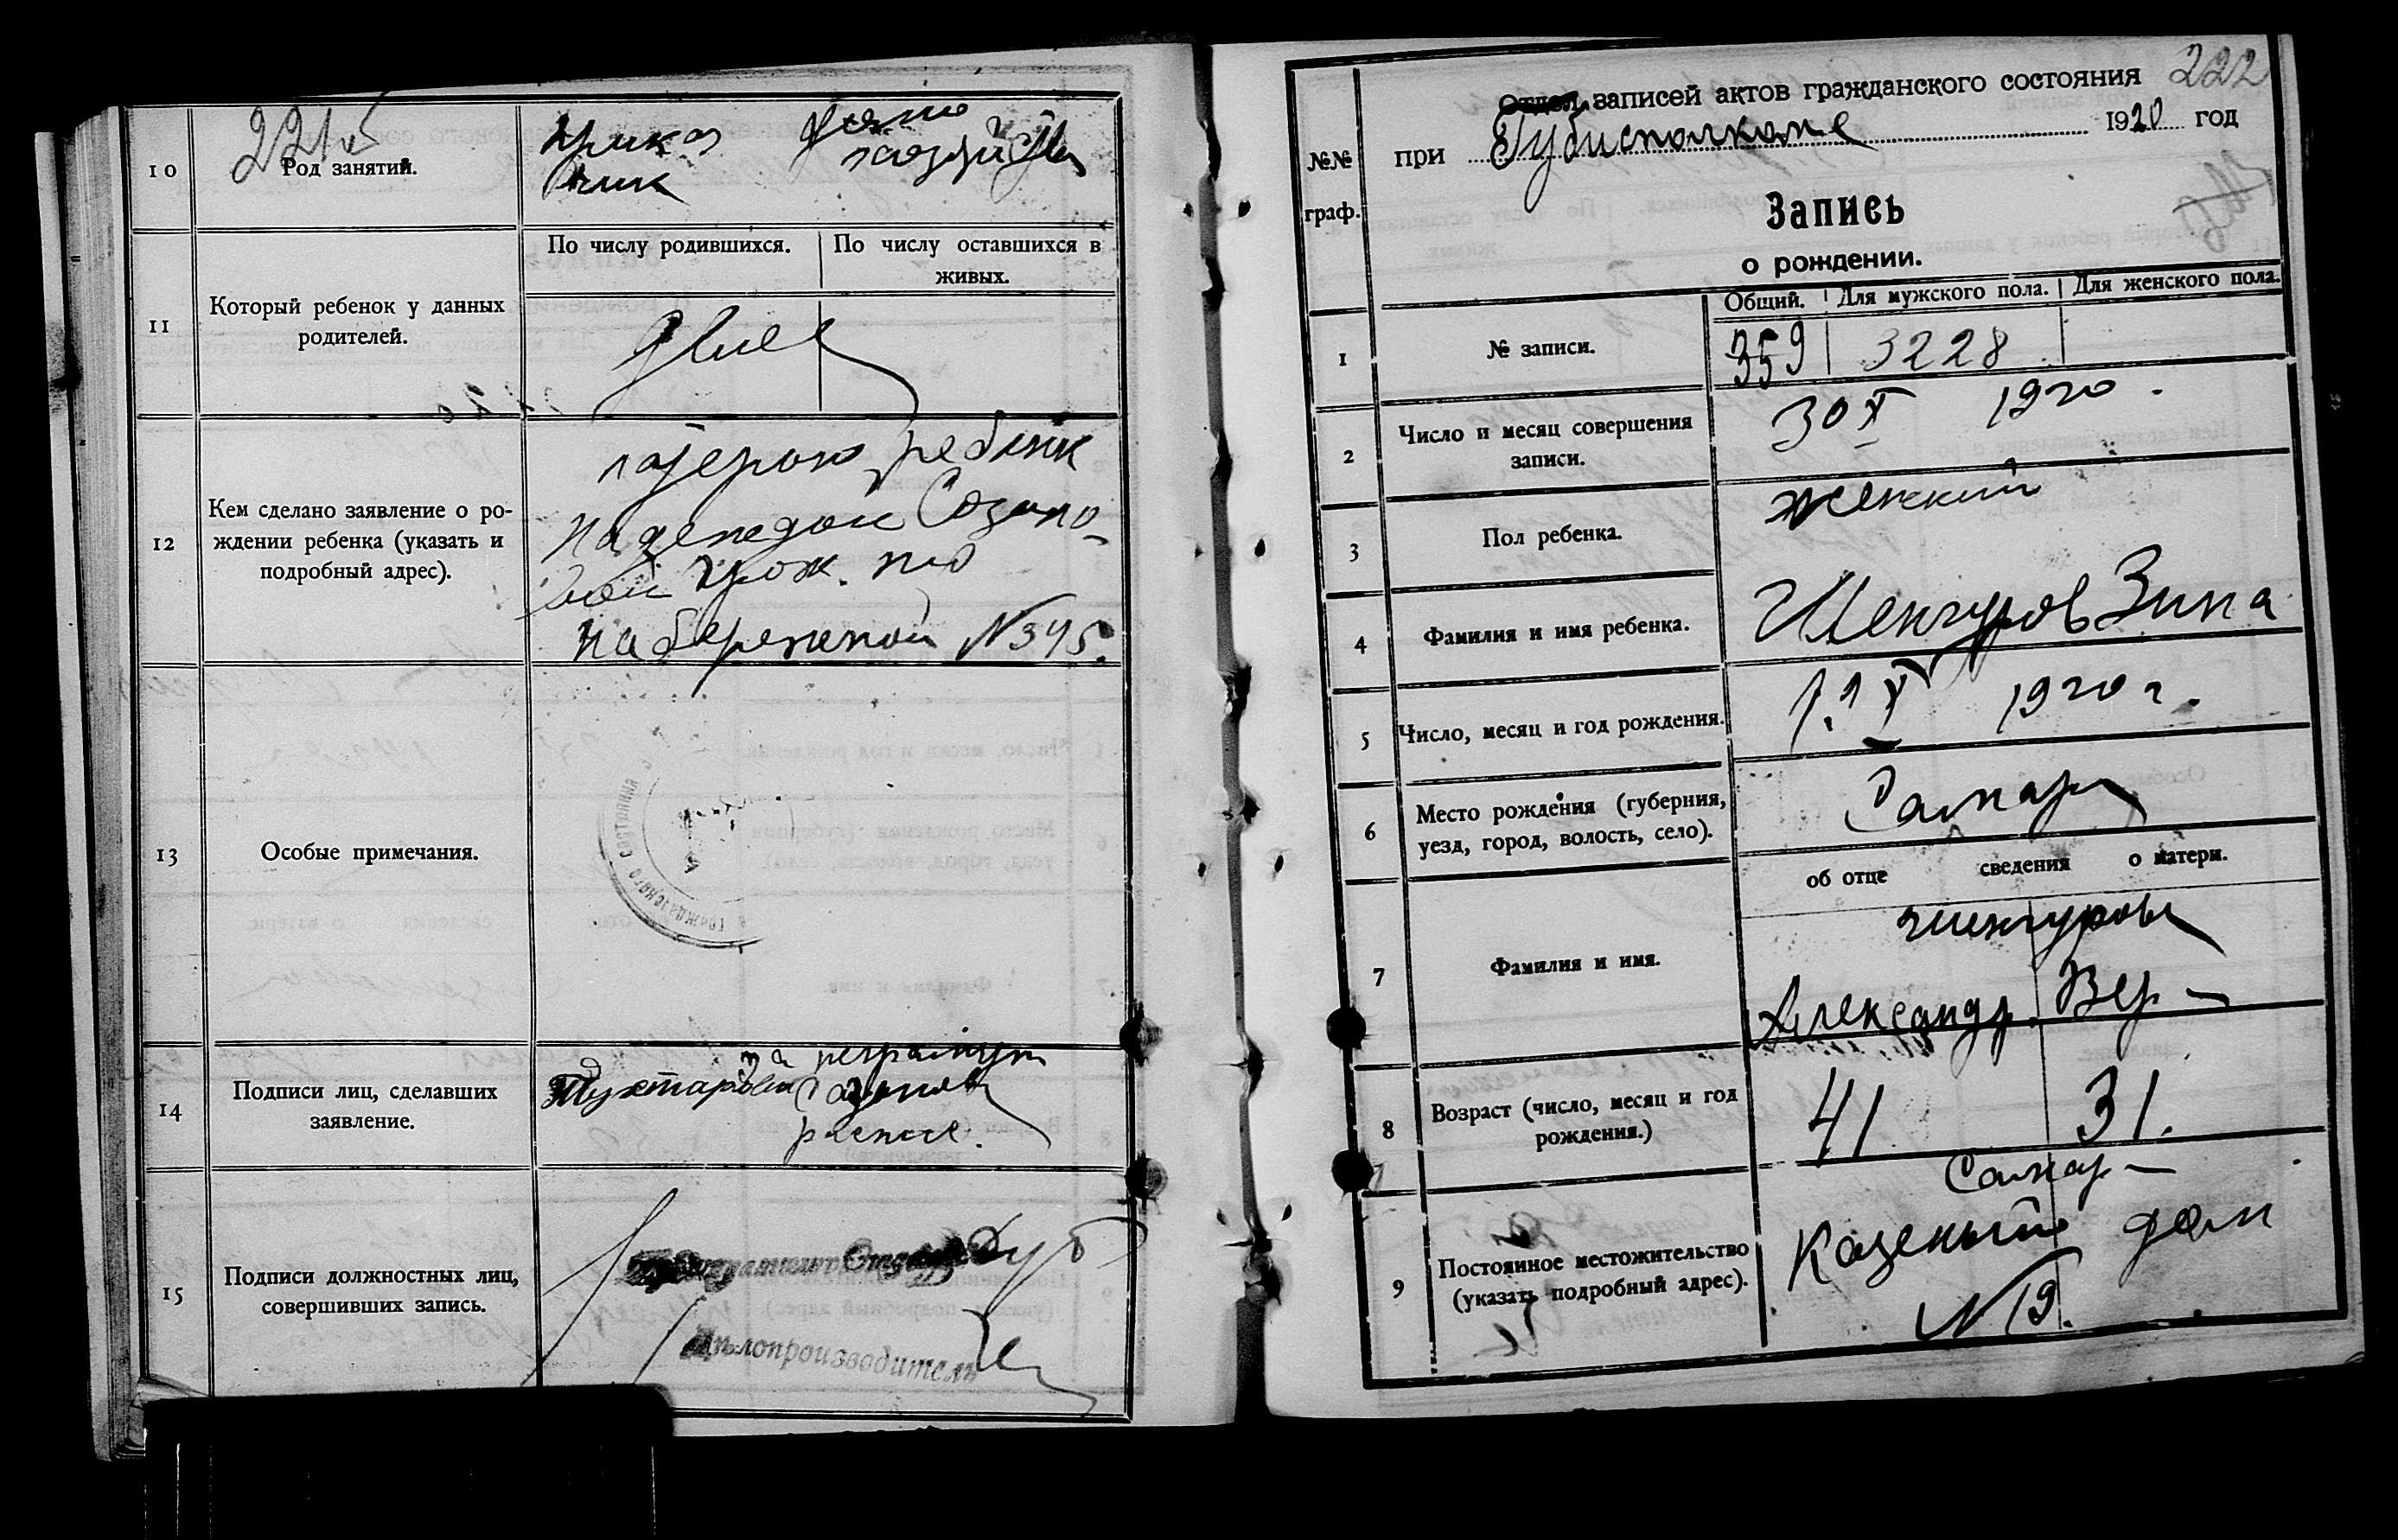 221 об
10
Род занятий.
Приказчик
Домо хозяйка
11
Который ребенок у данных
родителей.
По числу родившихся.
По числу оставшихся в
живых.
12
Кем сделано заявление о ро-
ждении ребенка (указать и
подробный адрес).
ребенк
Надеждой Созоно-
вой прож. по
Набережной №345.
13
Особые примечания.
гражданского состояния
14
Подписи лиц, сделавших
заявление.
за неграмотн
15
Подписи должностных лиц,
совершивших запись.
Делопроизводитель
222
Отдел записей актов гражданского состояния
при Губисполкоме 1920 год
№№
граф.
Запись
о рождении.
Общий.
Для мужского пола.
Для женского пола.
1
№ записи.
359
3228
2
Число и месяц совершения
записи.
30 X 1920.
3
Пол ребенка.
Женский
4
Фамилия и имя ребенка.
Шенгуров Зина
5
Число, месяц и год рождения.
X 1920 г.
6
Место рождения (губерния,
уезд, город, волость, село).
Самара
об отце
сведения
о матери.
7
Фамилия и имя.
Шенгуровы
Александр.
Вера
8
Возраст (число, месяц и год
рождения.)
41
31.
9
Постоянное местожительство
(указать подробный адрес).
Самара
Казеный дом
№19.